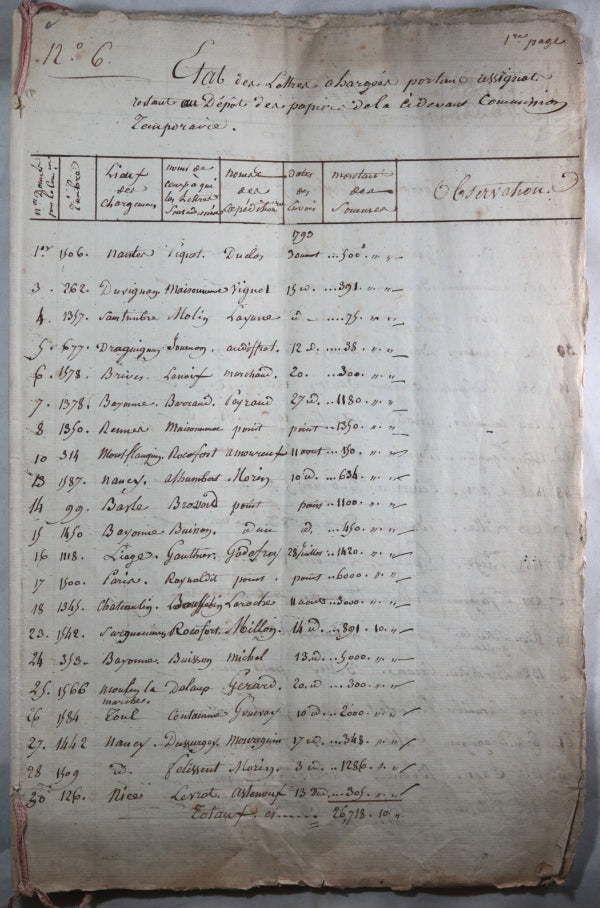 N.° 6.
1re page
Etat des Lettres chargées portant assignat
restant au Dépôt des papiers de la ci devant Commission
Temporaire.
Timbre Lieux des chargemens noms de ceux a qui les Lettres sont adressées noms des Expéditionres dates des Envois montant des Sommes Observations
1793
1er 1506. Nantes Vignot. Duclos 3 aoust ...500.
3. 262. Duvignau Maisonneuve Vignol 15 id. ...391. " "
4. 1357. Sans timbre Molin Layune id ....75. " "
5e 677. Draguignan Journon. audiffret. 12 d. ....38. " "
6. 1578. Brives. Lanoix marchand. 20. ...300. " "
7. 1378. Bayonne. Barraud. Peyraud 27 id. ..1180. " "
8 1350. Rennes Maisonneuve point point ..1350. " "
10 314 Montflanquin Rocofort amoureux 11 aout ...150. " "
13 1587. nancy. alhumbert Morin 10 id. ...634. " "
14 99. Basle Brossard point point ..1100. " "
15 1450 Bayonne Buison. id. ...450. " "
16 1118. Liège. Gauthier. Godefroy 28 juillet ..1420. " "
17 1500. Paris. Raynaldit point. point ..6000. " "
18 1345. Chateaulin. Laroche 11 aout ..3000. " "
23. 1542. Sarguemines Rocofort. Millon. 14 id. ...891. 10. "
24 353. Bayonne. Buisson michel 13 d. ..5000. " "
25. 1566 moulin la marches. Delaup Gerard. 20 d. ...300. " "
26 1584 Toul Contamine Genevay 10 id. ..2000. " "
27. 1442 nancy Dussurgey. Mouraguin 17 id. ...348. " "
28 1509 id. felissent Morin. 3 id. ..1286. " "
30 126. Nice Levrot Astenouf 13 ...305. " "
Totaux. ci ...... 26,718. 10. "